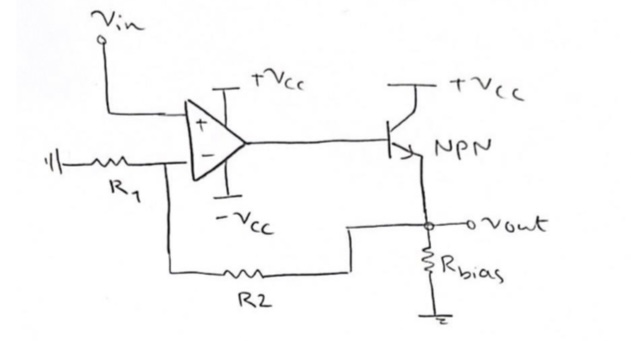 Vin
+Vcc
+Vcc
+
-
NPN
R1
-Vcc
Vout
Rbias
R2